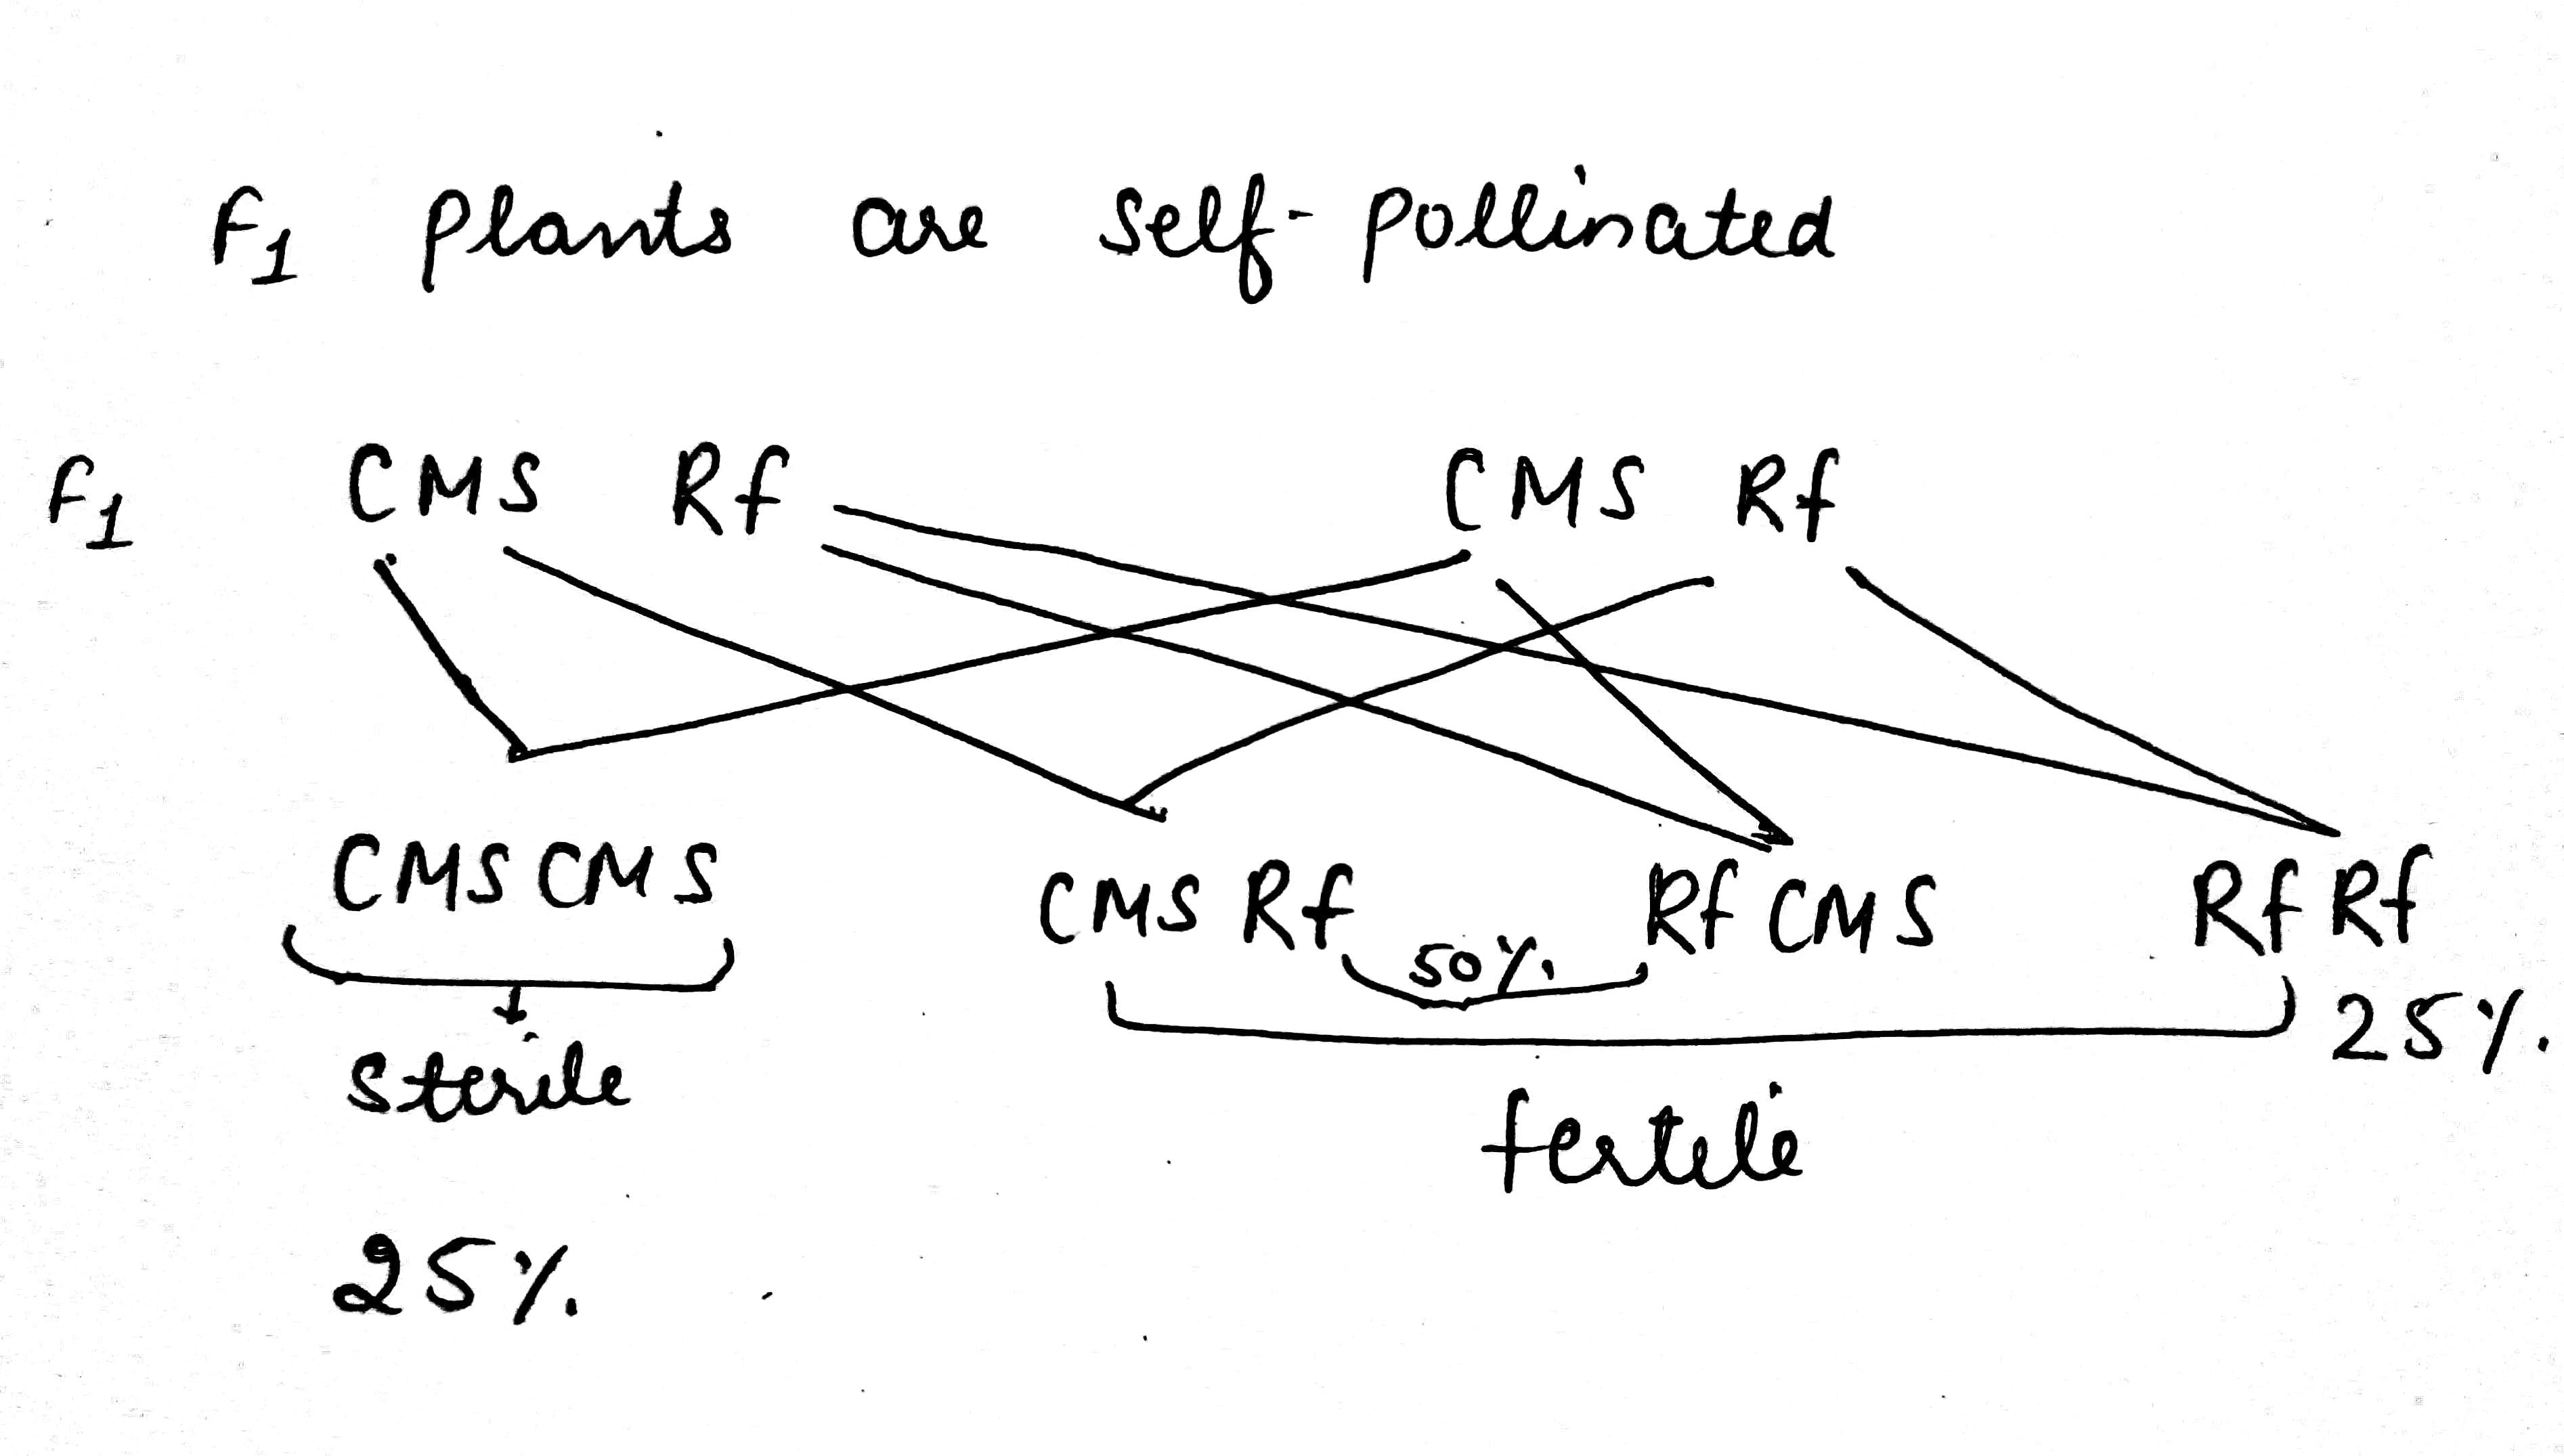 F1 plants are self-pollinated
F1 CMS Rf CMS Rf
CMS CMS CMS Rf Rf CMS Rf Rf
50%
25%
sterile
fertile
25%